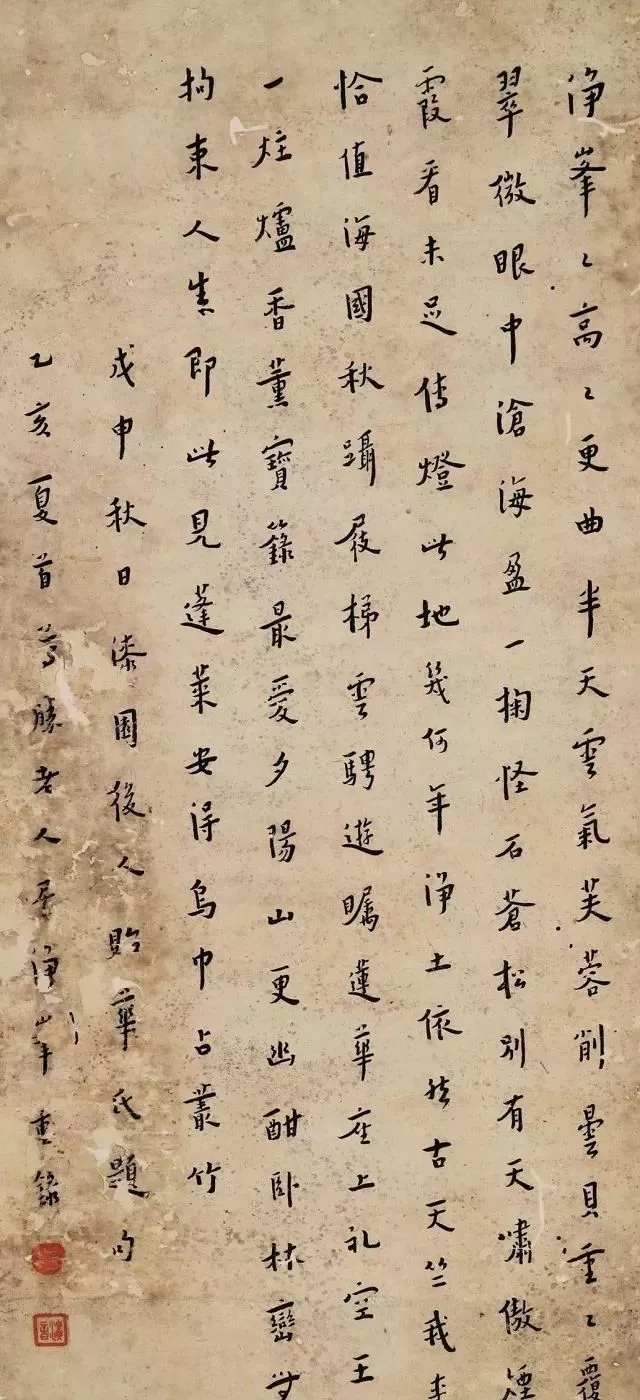 净峯〻高〻更曲半天雲氣芙蓉削曇貝重〻覆
翠微眼中滄海盈一掬怪石蒼松別有天嘯傲煙
霞看未足傳燈此地幾何年淨土依然古天竺我來
恰值海國秋躡屐梯雲騁遊矚蓮華座上礼空王
一炷爐香薰寶籙最愛夕陽山更幽酣卧林巒無
拘束人生即此見蓬萊安得烏巾占叢竹
戊申秋日漆園後人貽華氏題句
乙亥夏首尊勝老人居淨峯重錄